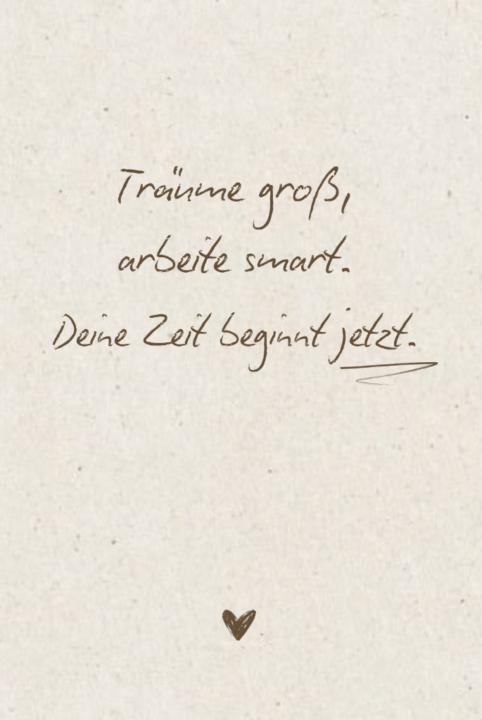 Träume groß,
arbeite smart.
Deine Zeit beginnt jetzt.